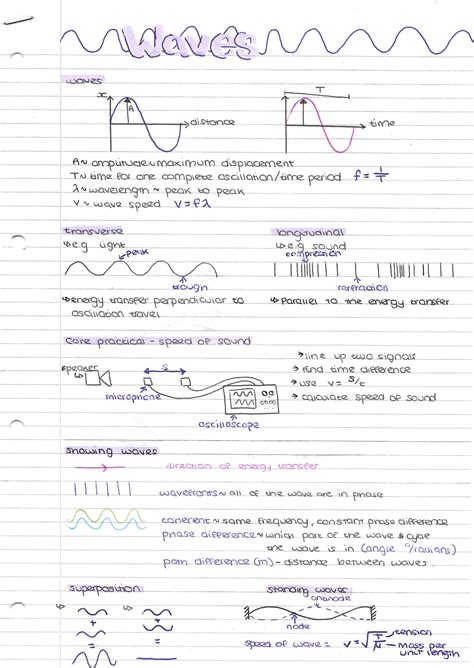 Waves
waves
x
A
→distance
T
→ time
A ~ amplitude ~ maximum displacement
T ~ time for one complete oscillation/time period f = 1/T
λ ~ wavelength ~ peak to peak
v ~ wave speed v = fλ
transverse
↳ e.g light
peak
trough
↳ energy transfer perpendicular to
oscillation travel
longitudinal
↳ e.g. sound
compression
rarefraction
↳ Parallel to the energy transfer
Core practical - speed of sound
speaker
s
microphone
oscilloscope
→ line up two signals
→ find time difference
→ use v = s/t
→ calculate speed of sound
showing waves
direction of energy transfer
wavefronts ~ all of the wave are in phase
coherent ~ same frequency, constant phase difference
phase difference ~ which part of the wave s cycle
the wave is in (angle °/radians)
path difference (m) - distance between waves.
superposition
↳
+
=
↳
+
=
standing waves
antinode
node
speed of wave = v = √T/μ
← tension
← mass per
unit length